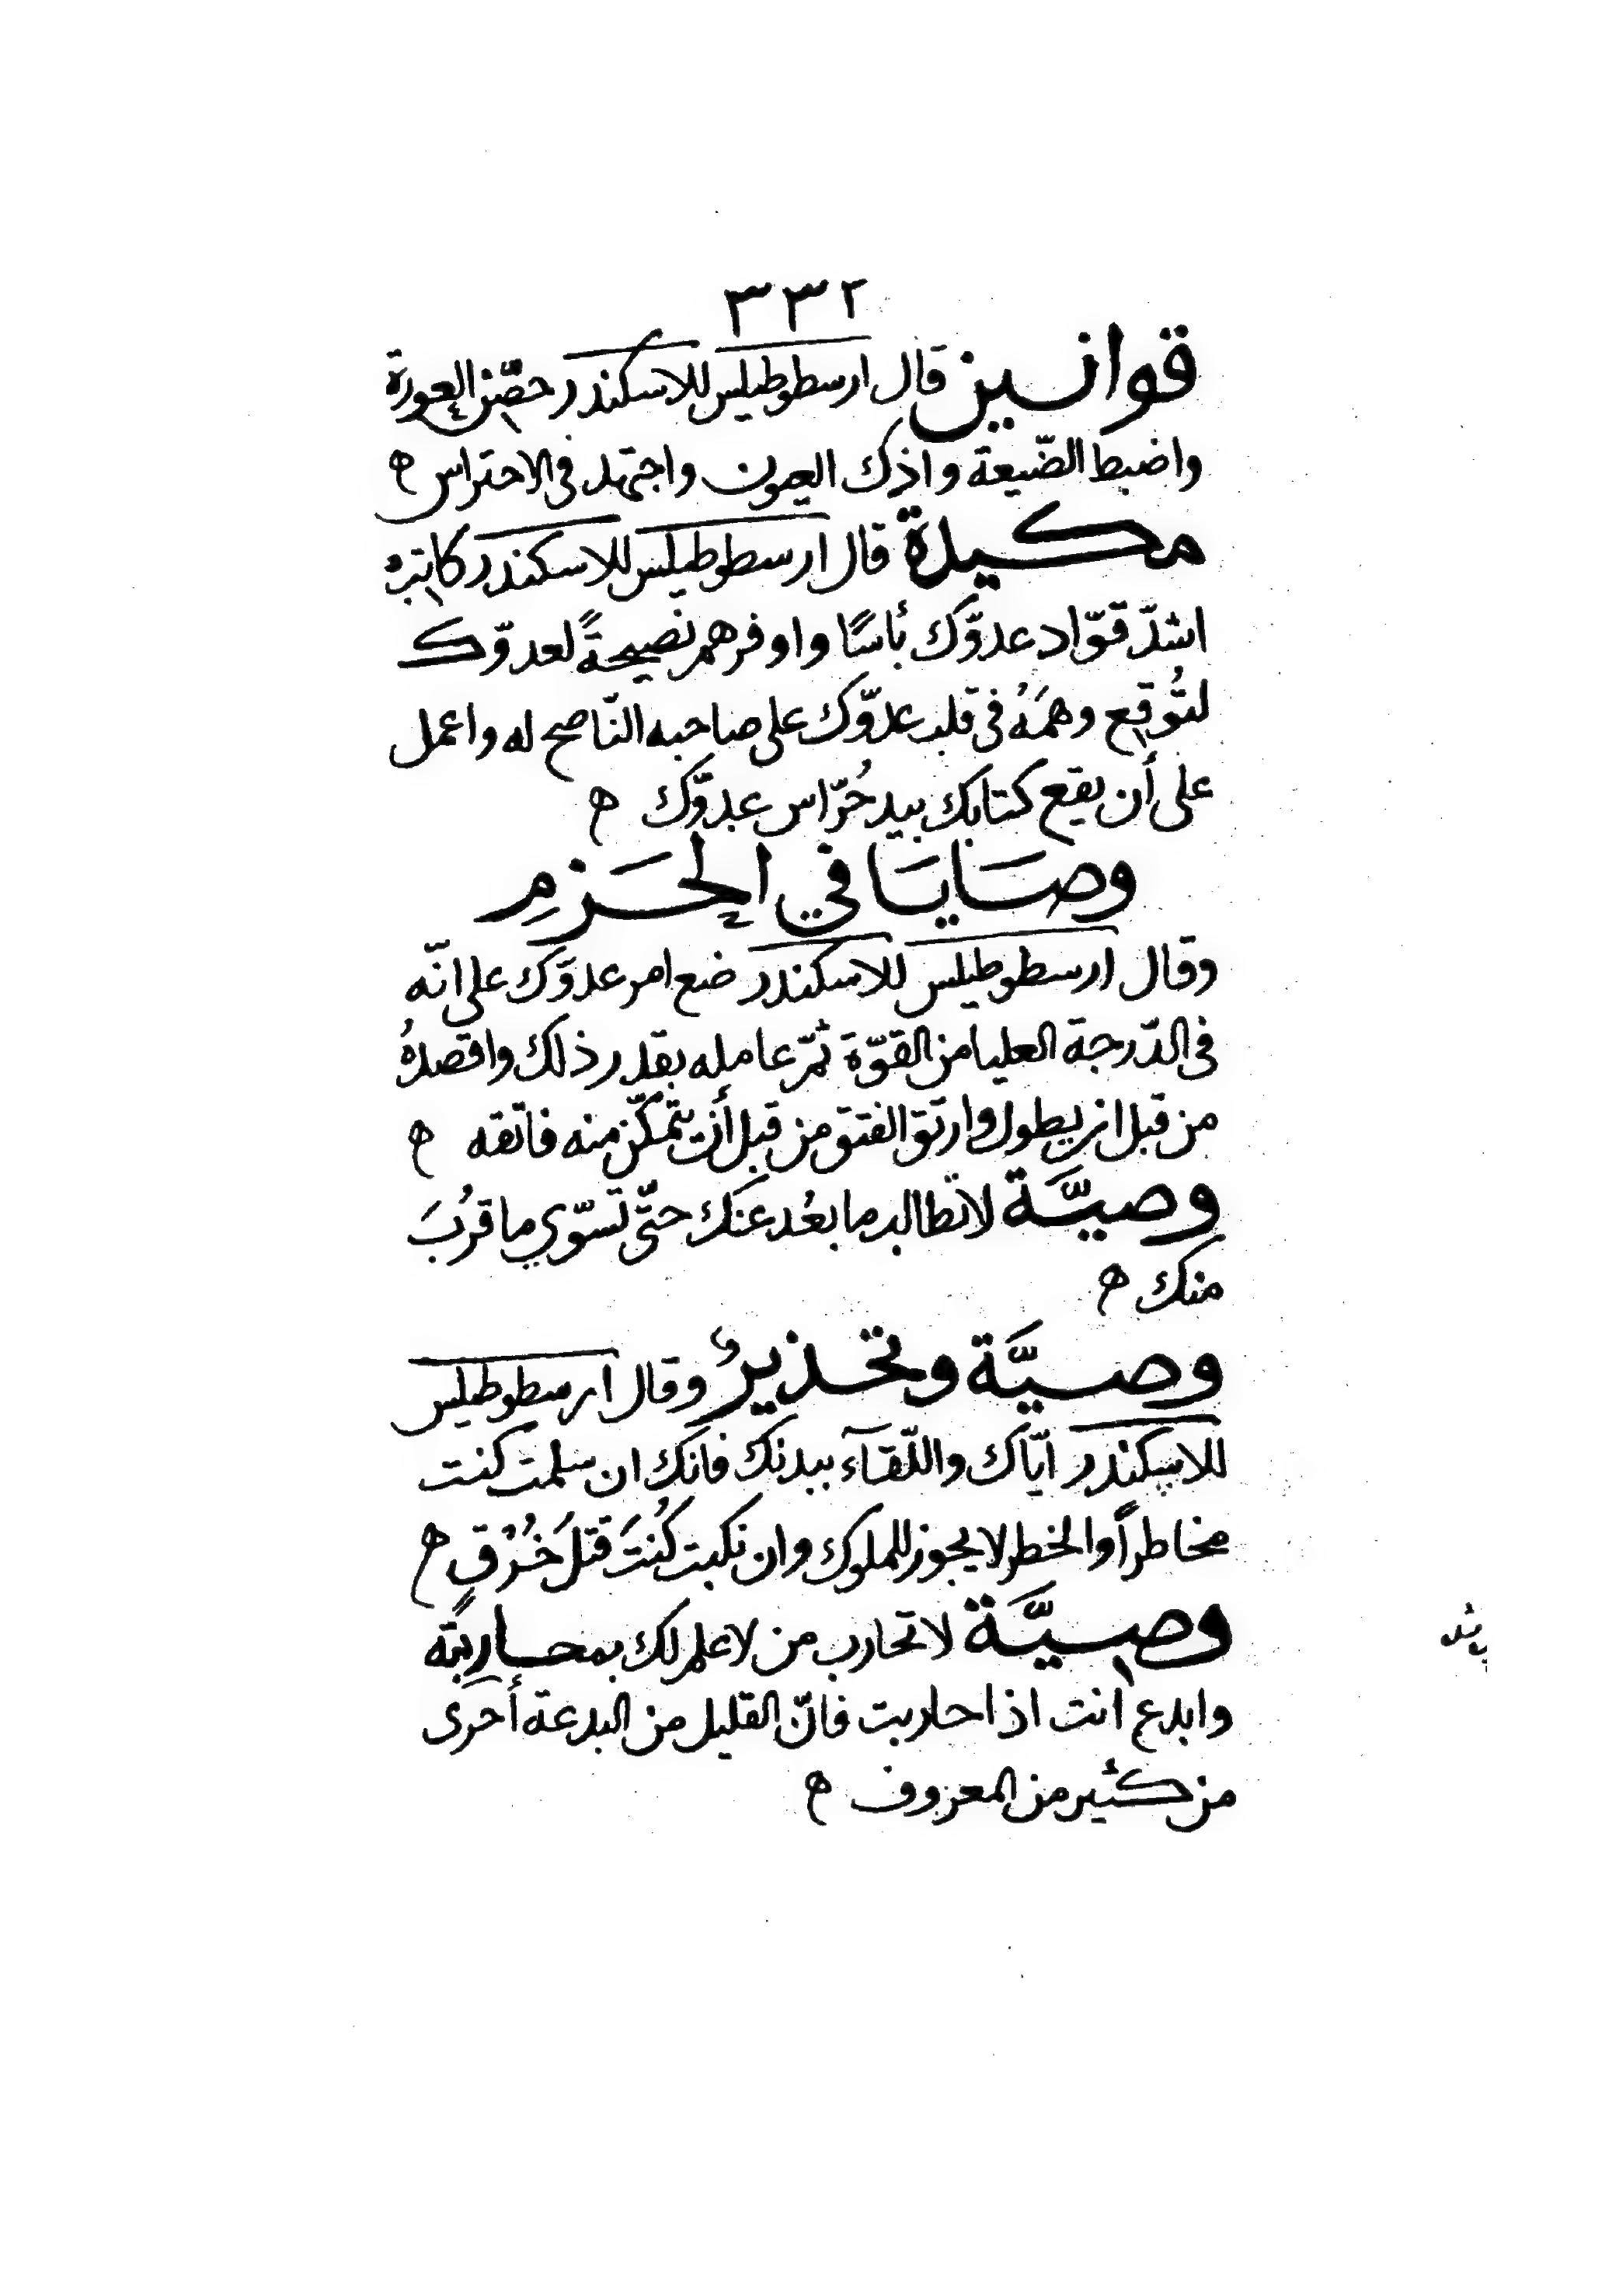 ٢٣٣
قوانين قال ارسطوطيلس للاسكندر حصّن العورة
واضبط الضّيعة واذك العيون واجتهد فى الاحتراس ه
مكيدة قال ارسطوطيلس للاسكندر كاتب
اشدّ قوّاد عدوّك بأسًا واوفرهم نصيحةً لعدوّك
لتُوقع وهمَهُ فى قلب عدوّك على صاحبه النّاصح له واعمل
على أن يقع كتابك بيد حُرّاس عدوَّك ه
وصَايَا في الحَزمِ
وقال ارسطوطيلس للاسكندر ضع امر عدوّك على انّه
فى الدّرجة العليا من القوّة ثمّ عامله بقدر ذلك واقصدهُ
من قبل ان يطول وارتق الفتق من قبل أن يتمكّن منه فاتقه ه
وصيَّة لا تطالب ما بعُد عنك حتّى تسوّي ما قرُبَ
منك ه
وصيَّة وتحذيرٌ وقال ارسطوطيلس
للاسكندر ايّاك واللّقآء ببدنك فانك ان سلمت كنت
مخاطراً والخطر لا يجوز للملوك وان نكبت كُنتَ قتلَ خُرْقٍ ه
وصيَّة لا تحارب من لا علم لك بمحاربته
وابدع انت اذا حاربت فانّ القليل من البدعة أحرى
من كثير من المعروف ه